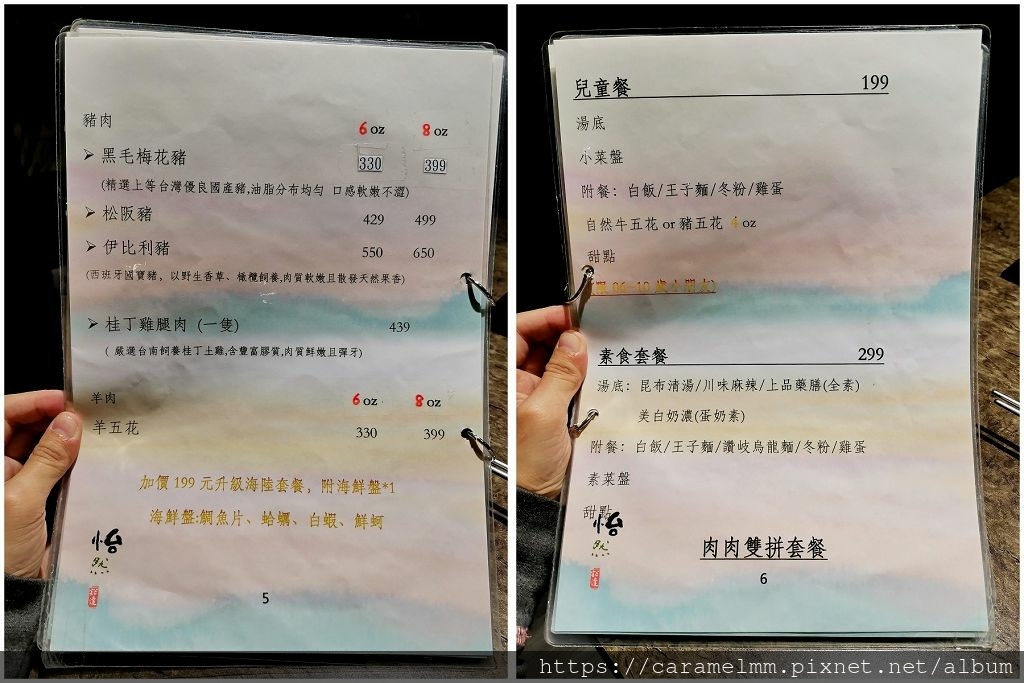 豬肉
6 oz 8 oz
➢ 黑毛梅花豬 330 399
(精選上等台灣優良國產豬,油脂分布均勻 口感軟嫩不澀)
➢ 松阪豬 429 499
➢ 伊比利豬 550 650
(西班牙國寶豬, 以野生香草、橄欖飼養,肉質軟嫩且散發天然果香)
➢ 桂丁雞腿肉 (一隻) 439
( 嚴選台南飼養桂丁土雞,含豐富膠質,肉質鮮嫩且彈牙)
羊肉 6 oz 8 oz
羊五花 330 399
加價 199 元升級海陸套餐, 附海鮮盤*1
海鮮盤:鯛魚片、蛤蠣、白蝦、鮮蚵
怡
然
5
兒童餐 199
湯底
小菜盤
附餐: 白飯/王子麵/冬粉/雞蛋
自然牛五花 or 豬五花 4 oz
甜點
素食套餐 299
湯底: 昆布清湯/川味麻辣/上品藥膳(全素)
美白奶濃(蛋奶素)
附餐: 白飯/王子麵/讚岐烏龍麵/冬粉/雞蛋
素菜盤
甜點
怡
然
肉肉雙拼套餐
6
https://caramelmm.pixnet.net/album